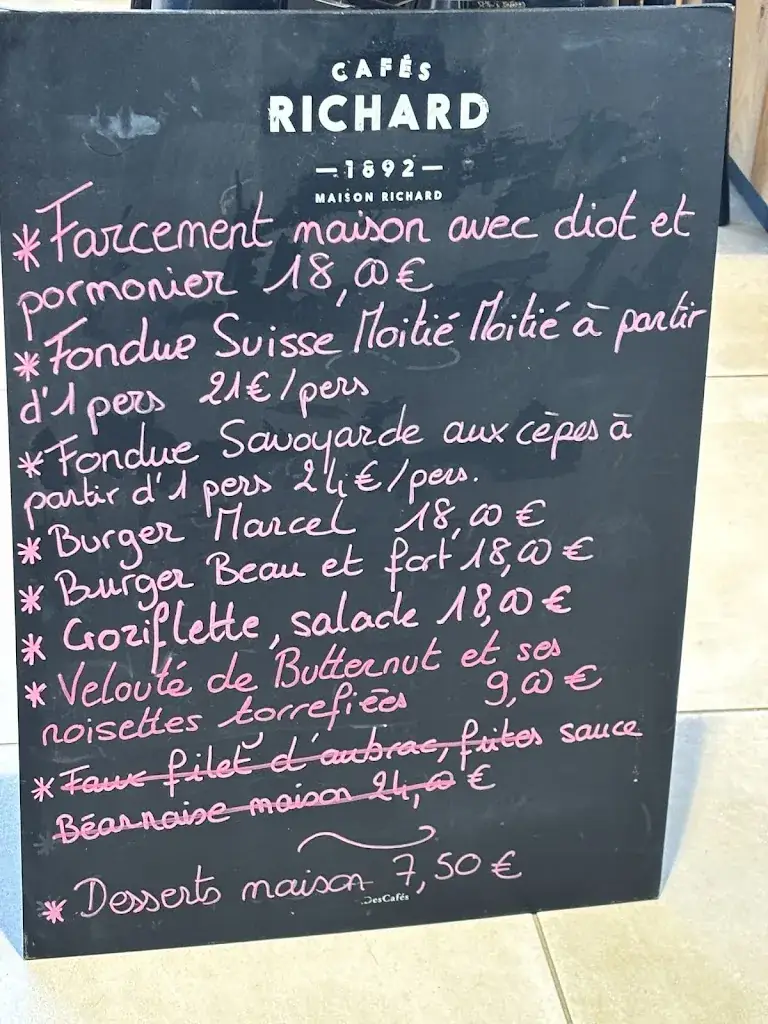 CAFÉS
RICHARD
—1892—
MAISON RICHARD
* Farcement maison avec diot et
pormonier 18,00€
* Fondue Suisse Moitié Moitié à partir
d'1 pers 21€/pers
* Fondue Savoyarde aux cèpes à
partir d'1 pers 24€/pers.
* Burger Marcel 18,00€
* Burger Beau et fort 18,00€
* Croziflette, salade 18,00€
* Velouté de Butternut et ses
noisettes torrefiées 9,00€
* Faux filet d'aubrac, frites sauce
Béarnaise maison 24,00€
* Desserts maison 7,50€
DesCafés